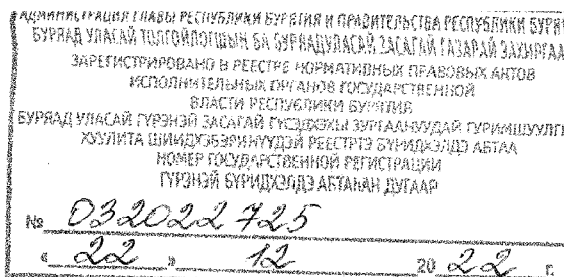 АДМИНИСТРАЦИЯ ГЛАВЫ РЕСПУБЛИКИ БУРЯТИЯ И ПРАВИТЕЛЬСТВА РЕСПУБЛИКИ БУРЯ
БУРЯАД УЛАСАЙ ТОЛГОЙЛОГШЫН БА БУРЯАД УЛАСАЙ ЗАСАГАЙ ГАЗАРАЙ ЗАХИРГАА
ЗАРЕГИСТРИРОВАНО В РЕЕСТРЕ НОРМАТИВНЫХ ПРАВОВЫХ АКТОВ
ИСПОЛНИТЕЛЬНЫХ ОРГАНОВ ГОСУДАРСТВЕННОЙ
ВЛАСТИ РЕСПУБЛИКИ БУРЯТИЯ
БУРЯАД УЛАСАЙ ГҮРЭНЭЙ ЗАСАГАЙ ГҮЙСЭДХЭХЫ ЗУРГААНУУДАЙ ГУРИМШУУЛГ
ХУУЛИТА ШИИДХЭБЭРИНҮҮДЭЙ РЕЕСТРТЭ БҮРИДХЭЛДЭ АБТАА
НОМЕР ГОСУДАРСТВЕННОЙ РЕГИСТРАЦИИ
ГҮРЭНЭЙ БҮРИДХЭЛДЭ АБТАҺАН ДУГААР
№ 032022725
« 22 » 12 20 22 г.